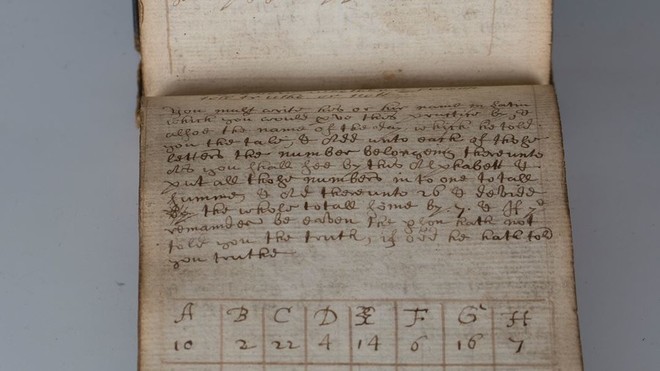 You must write his or her name in Latin
which you would prove this practice by, &
allsoe the name of the day which he told
you the tale, & Add unto each of those
letters the number belonging thereunto
As you shall see by this Alphabett &
put all those numbers in to one totall
summe & Ad thereunto 26 & devide
the whole totall some by 7. & If ye
remainder be eaven the pson hath not
told you the truth, if odd he hath told
you truthe
A B C D E F G H
10 2 22 4 14 6 16 7